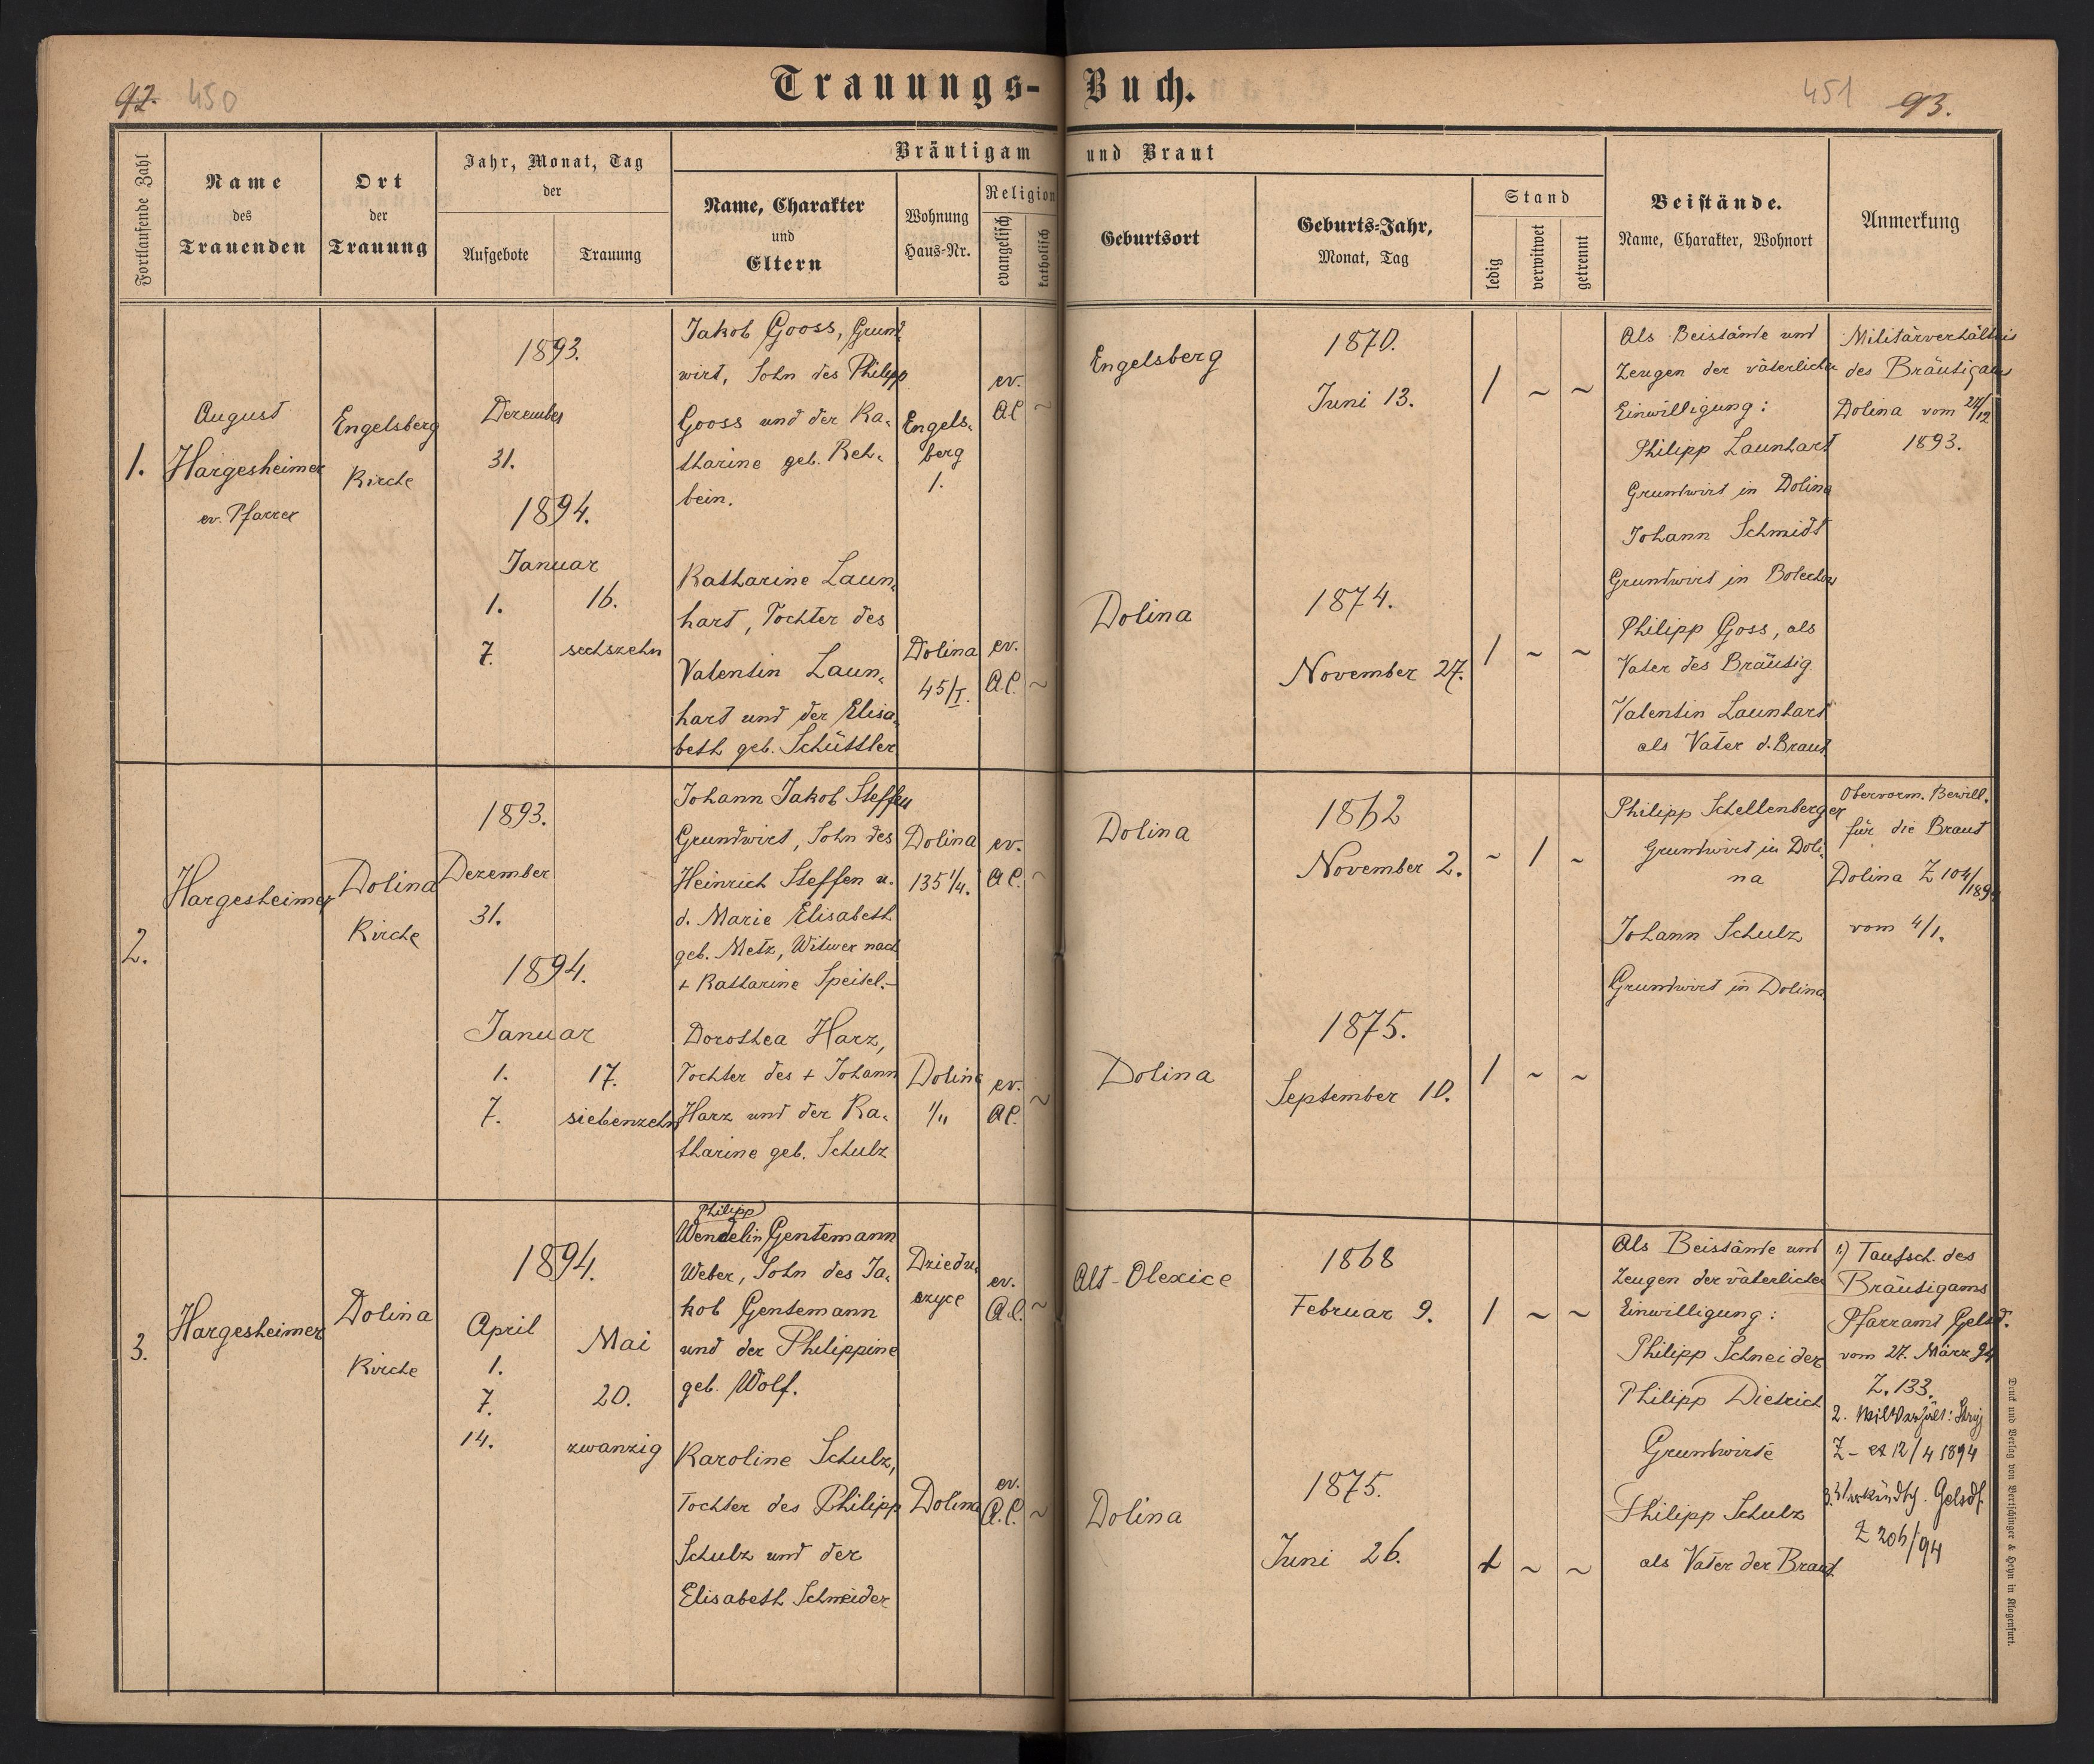 92. 450
Trauungs-Buch.
451 93.
Fortlaufende Zahl
Name
des
Trauenden
Ort
der
Trauung
Jahr, Monat, Tag
der
Aufgebote
Trauung
Bräutigam und Braut
Name, Charakter
und
Eltern
Wohnung
Haus-Nr.
Religion
evangelisch
katholisch
Geburtsort
Geburts-Jahr,
Monat, Tag
Stand
ledig
verwitwet
getrennt
Beistände.
Name, Charakter, Wohnort
Anmerkung
1.
August
Hargesheimer
ev. Pfarrer
Engelsberg
Kirche
1893.
Dezember
31.
1894.
Januar
1. 16.
7. sechszehn
Jakob Gooss, Grund-
wirt, Sohn des Philipp
Gooss und der Ka-
tharine geb. Reh-
bein.
Engels-
berg
1.
ev.
A.C. ~
Engelsberg
1870.
Juni 13.
/ ~ ~
Katharine Laun-
hart, Tochter des
Valentin Laun-
hart und der Elisa-
beth geb. Schüttler
Dolina
45/I.
ev.
A.C. ~
Dolina
1874.
November 27.
/ ~ ~
Als Beistände und
Zeugen der väterlichen
Einwilligung:
Philipp Launhart
Grundwirt in Dolina
Johann Schmidt
Grundwirt in Bolechow
Philipp Goss, als
Vater des Bräutig
Valentin Launhart
als Vater d. Braut
Militärverhältnis
des Bräutigams
Dolina vom 24/12
1893.
2.
Hargesheimer
Dolina
Kirche
1893.
Dezember
31.
1894.
Januar
1. 17.
7. siebenzehn
Johann Jakob Steffen
Grundwirt, Sohn des
Heinrich Steffen u.
d. Marie Elisabeth
geb. Metz, Witwer nach
+ Katharine Speitel.-
Dolina
135 1/4.
ev.
A.C. ~
Dolina
1862
November 2.
~ / ~
Dorothea Harz,
Tochter des + Johann
Harz und der Ka-
tharine geb. Schulz
Dolina
1/11
ev.
A.C. ~
Dolina
1875.
September 10.
/ ~ ~
Philipp Schellenberger
Grundwirt in Doli-
na
Johann Schulz
Grundwirt in Dolina
Obervorm. Bewill.
für die Braut
Dolina Z 104/1894
vom 4/1.
3.
Hargesheimer
Dolina
Kirche
1894.
April
Mai
1.
7. 20.
14. zwanzig
Philipp
Wendelin Gentemann
Weber, Sohn des Ja-
kob Gentemann
und der Philippine
geb. Wolf.
Driedu-
szyce
ev.
A.C. ~
Alt-Olexice
1868
Februar 9.
/ ~ ~
Karoline Schulz,
Tochter des Philipp
Schulz und der
Elisabeth Schneider
Dolina
ev.
A.C. ~
Dolina
1875.
Juni 26.
/ ~ ~
Als Beistände und
Zeugen der väterlichen
Einwilligung:
Philipp Schneider
Philipp Dietrich
Grundwirte
Philipp Schulz
als Vater der Braut.
1.) Taufsch. des
Bräutigams
Pfarramt Gelsd.
vom 27. März 94
Z. 133.
2. Stryj
12/4 1894
3. Gelsdf.
Z 206/94
Druck und Verlag von Bertschinger & Heyn in Klagenfurt.